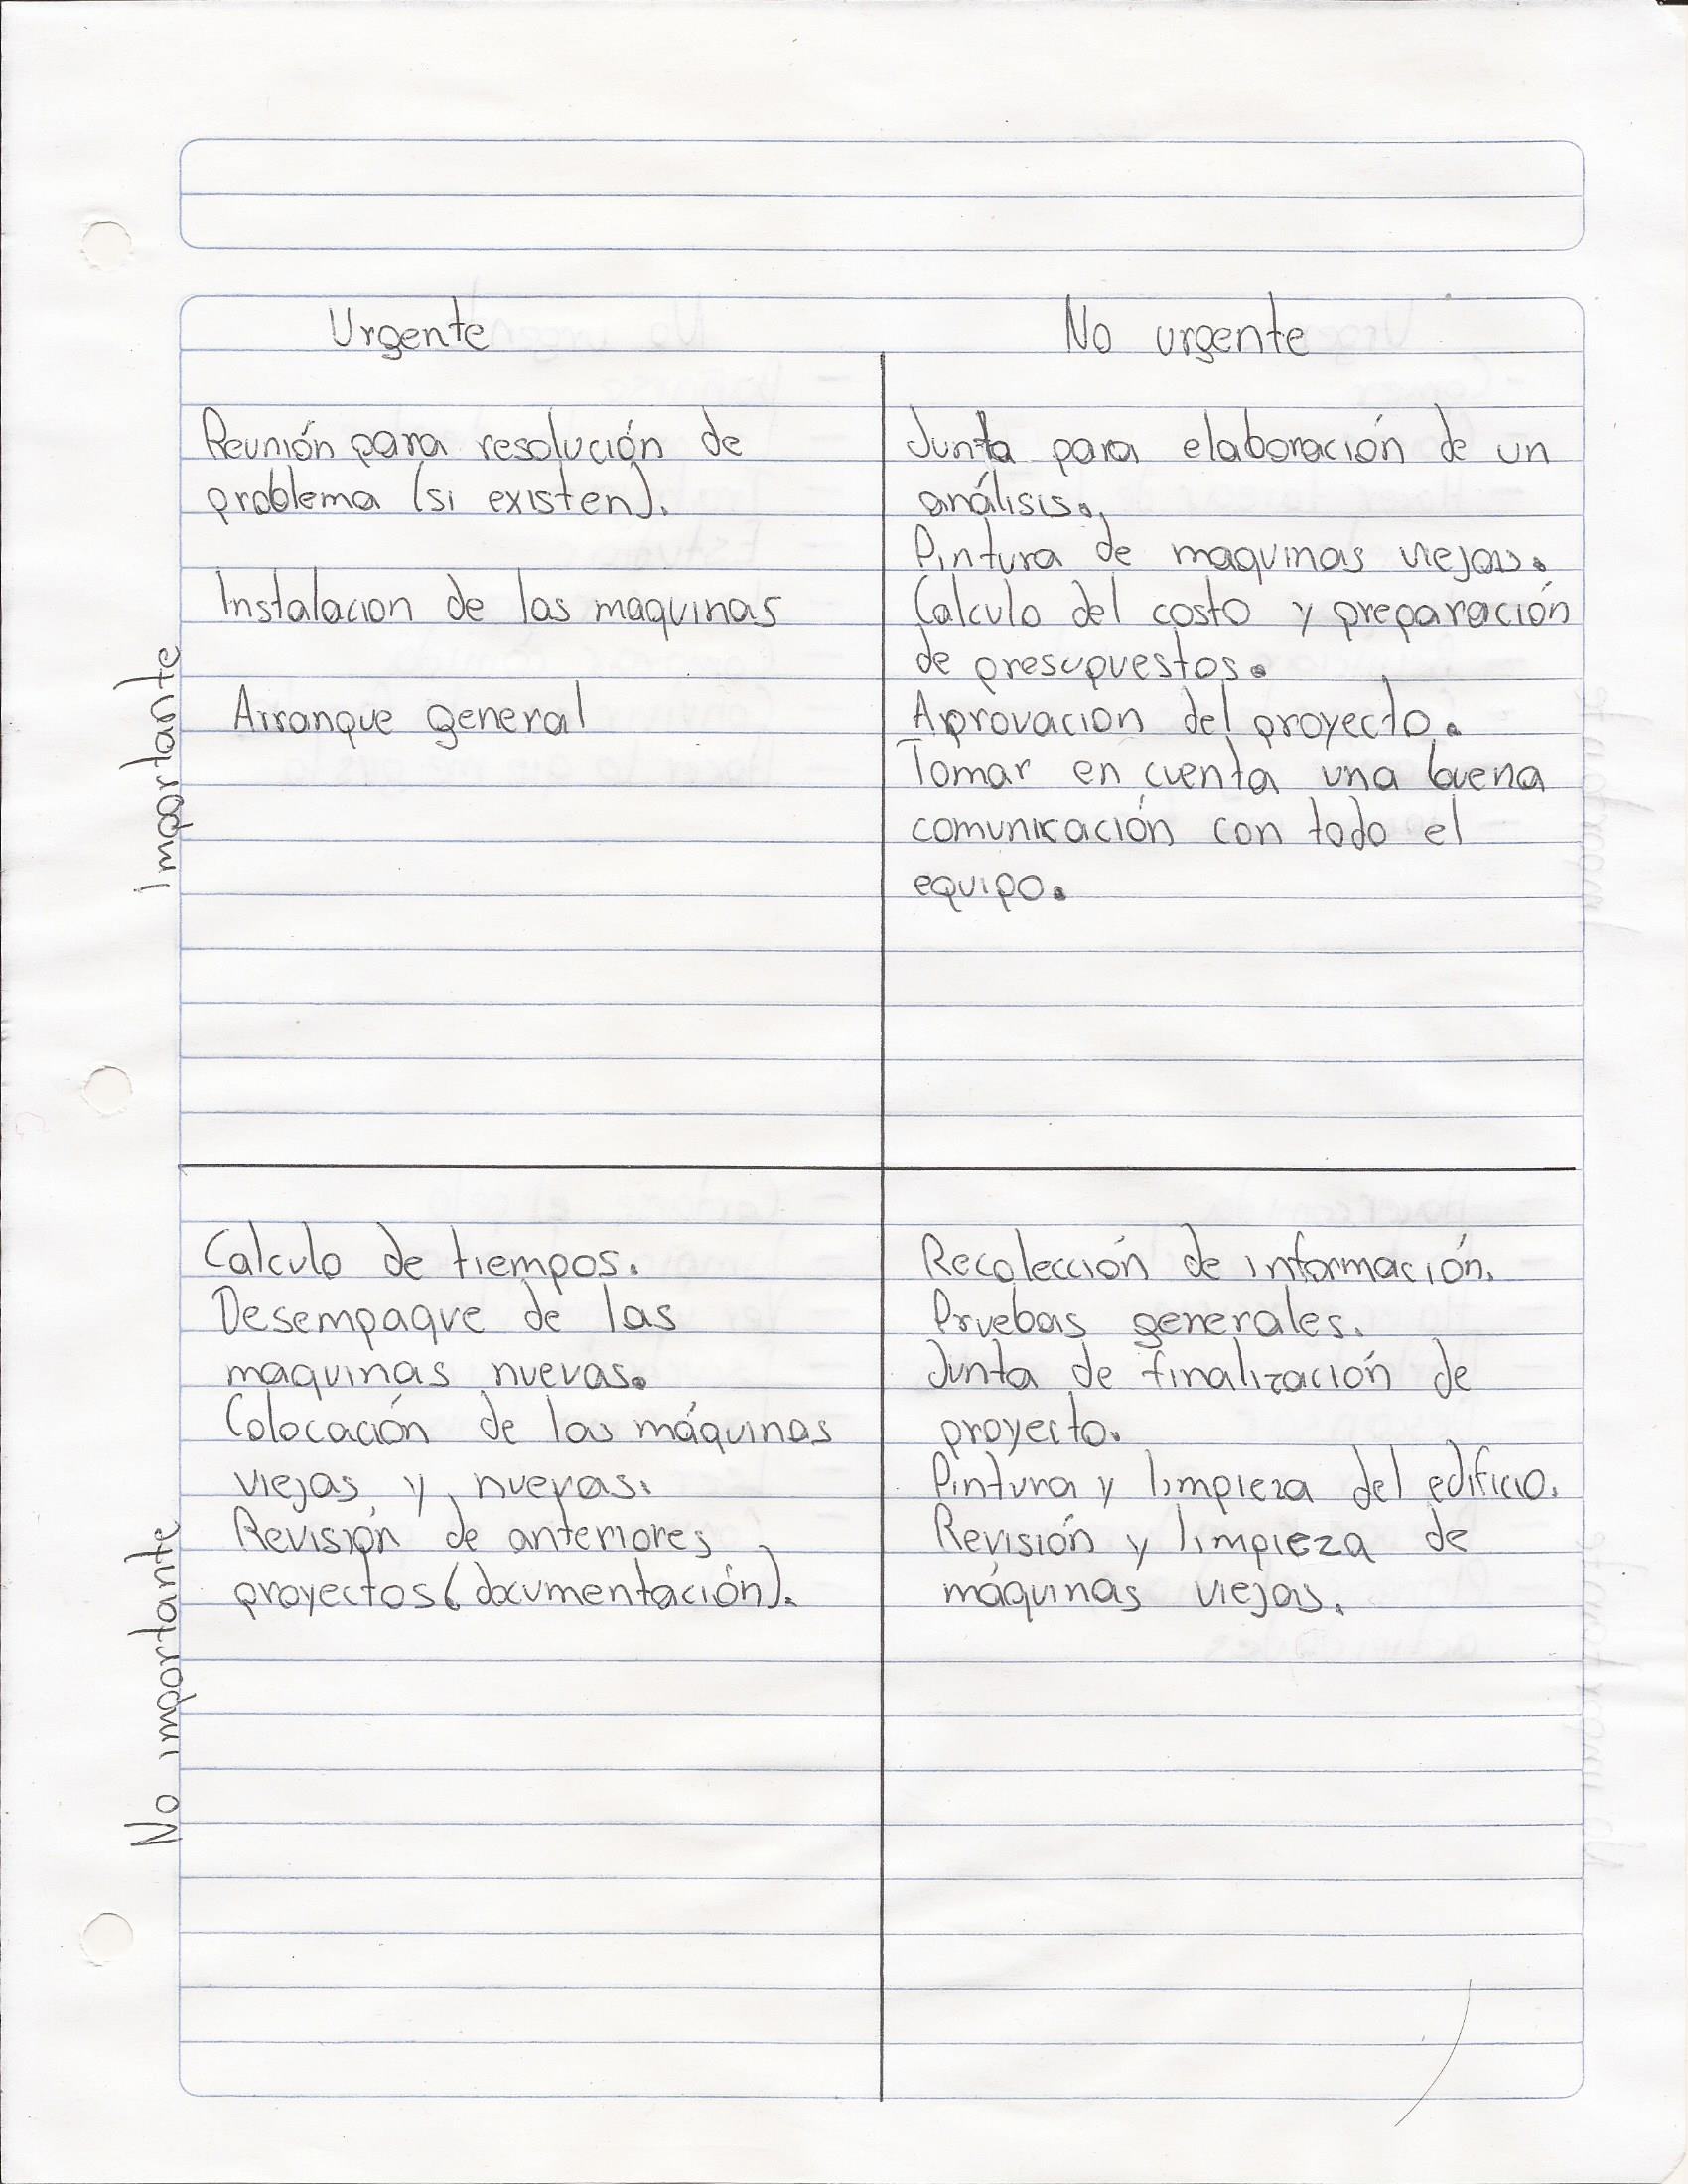 Urgente
No urgente
Importante
Reunión para resolución de
problema (si existen).
Instalacion de las maquinas
Arranque general
Junta para elaboración de un
análisis.
Pintura de maquinas viejas.
Calculo del costo y preparación
de presupuestos.
Aprovacion del proyecto.
Tomar en cuenta una buena
comunicación con todo el
equipo.
No importante
Calculo de tiempos.
Desempaque de las
maquinas nuevas.
Colocación de las máquinas
viejas y nuevas.
Revisión de anteriores
proyectos (documentación).
Recolección de información.
Pruebas generales.
Junta de finalización de
proyecto.
Pintura y limpieza del edificio.
Revisión y limpieza de
máquinas viejas.